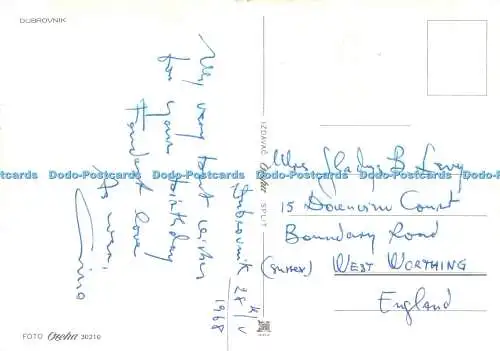 DUBROVNIK
My very best wishes
for your birthday
Fondest love
As ever,
Dubrovnik 28/V
1968
IZDAVAČ SPLIT
Mrs Gladys B Levy
15 Downview Court
Boundary Road
(Sussex) WEST WORTHING
England
Dodo-Postcards Dodo-Postcards Dodo-Postcards Dodo-Postcards Dodo-Postcards Dodo-Postcards
FOTO 30210